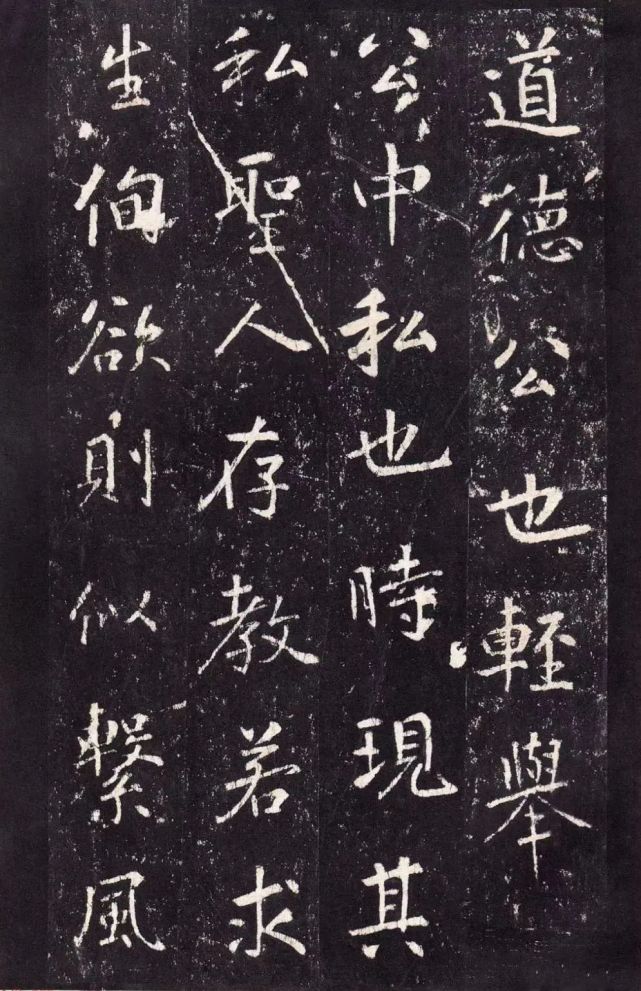 道德公也輕舉
公中私也時現其
私聖人存教若求
生徇欲則似繫風